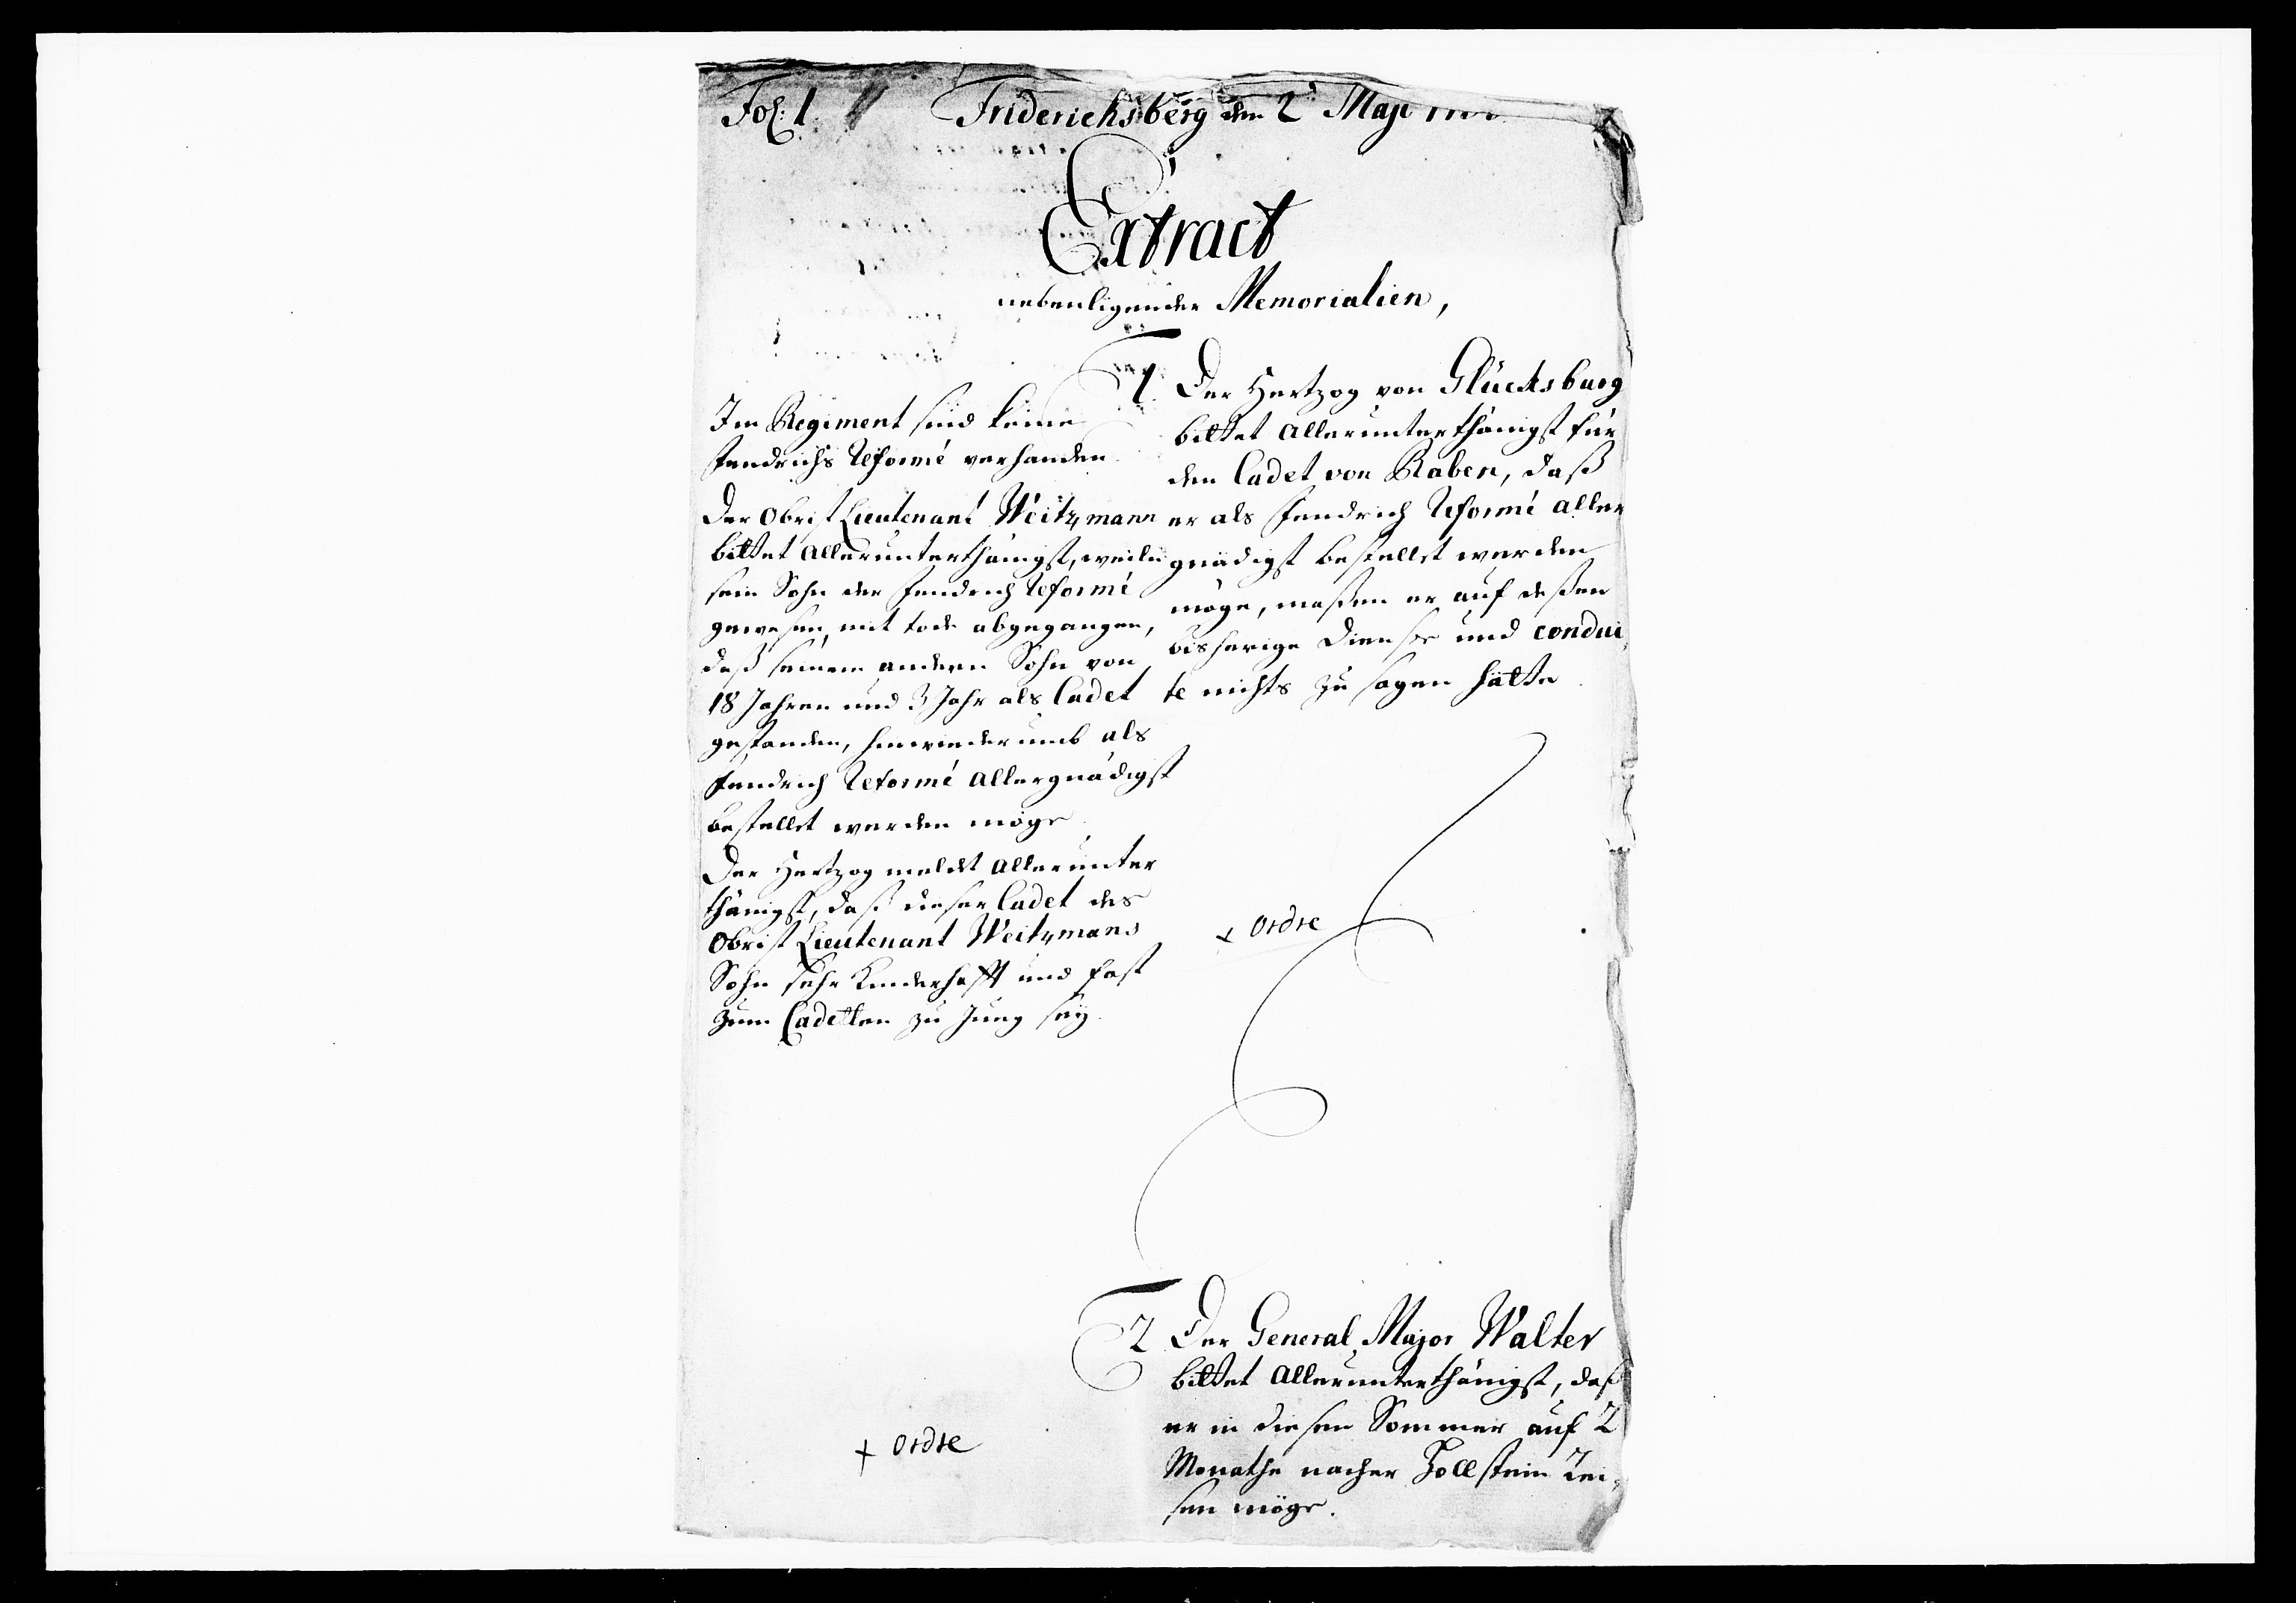 Fol: 1
Friderichsberg den 2t Maji
Extract
nebenligender Memorialien,
1. Der Hertzog von Glücksburg
bittet allerunterthänigst für
den Cadet von Raben, daß
er als Fendrich Reformé aller
gnädigst bestellet werden
möge, maßen er auf deßen
bisherige Dienste und condui,
te nichts zu sagen hätte
Im Regiment sind keine
Fendrichs Reformé verhanden.
Der Obrist Lieutenant Weitzmann
bittet allerunterthänigst, weiln
sein Sohn der Fendrich Reformé
gewesen, mit tode abgegangen,
daß seinem andern Sohn von
18 Jahren und 3 Jahr als Cadet
gestanden, hinwiederumb als
Fendrich Reformé allergnädigst
bestellet werden möge.
Der Hertzog meldet allerunter
thänigst, daß dieser Cadet des
Obrist Lieutenant Weitzmans
Sohn sehr Kinderhafft und fast
zum Cadetten zu Jung seÿ.
+ ordre
2 Der General Major Walter
bittet allerunterthänigst, daß
er in diesen Sommer auf 2
Monathe nacher Hollstein Rei,
sen möge.
+ ordre